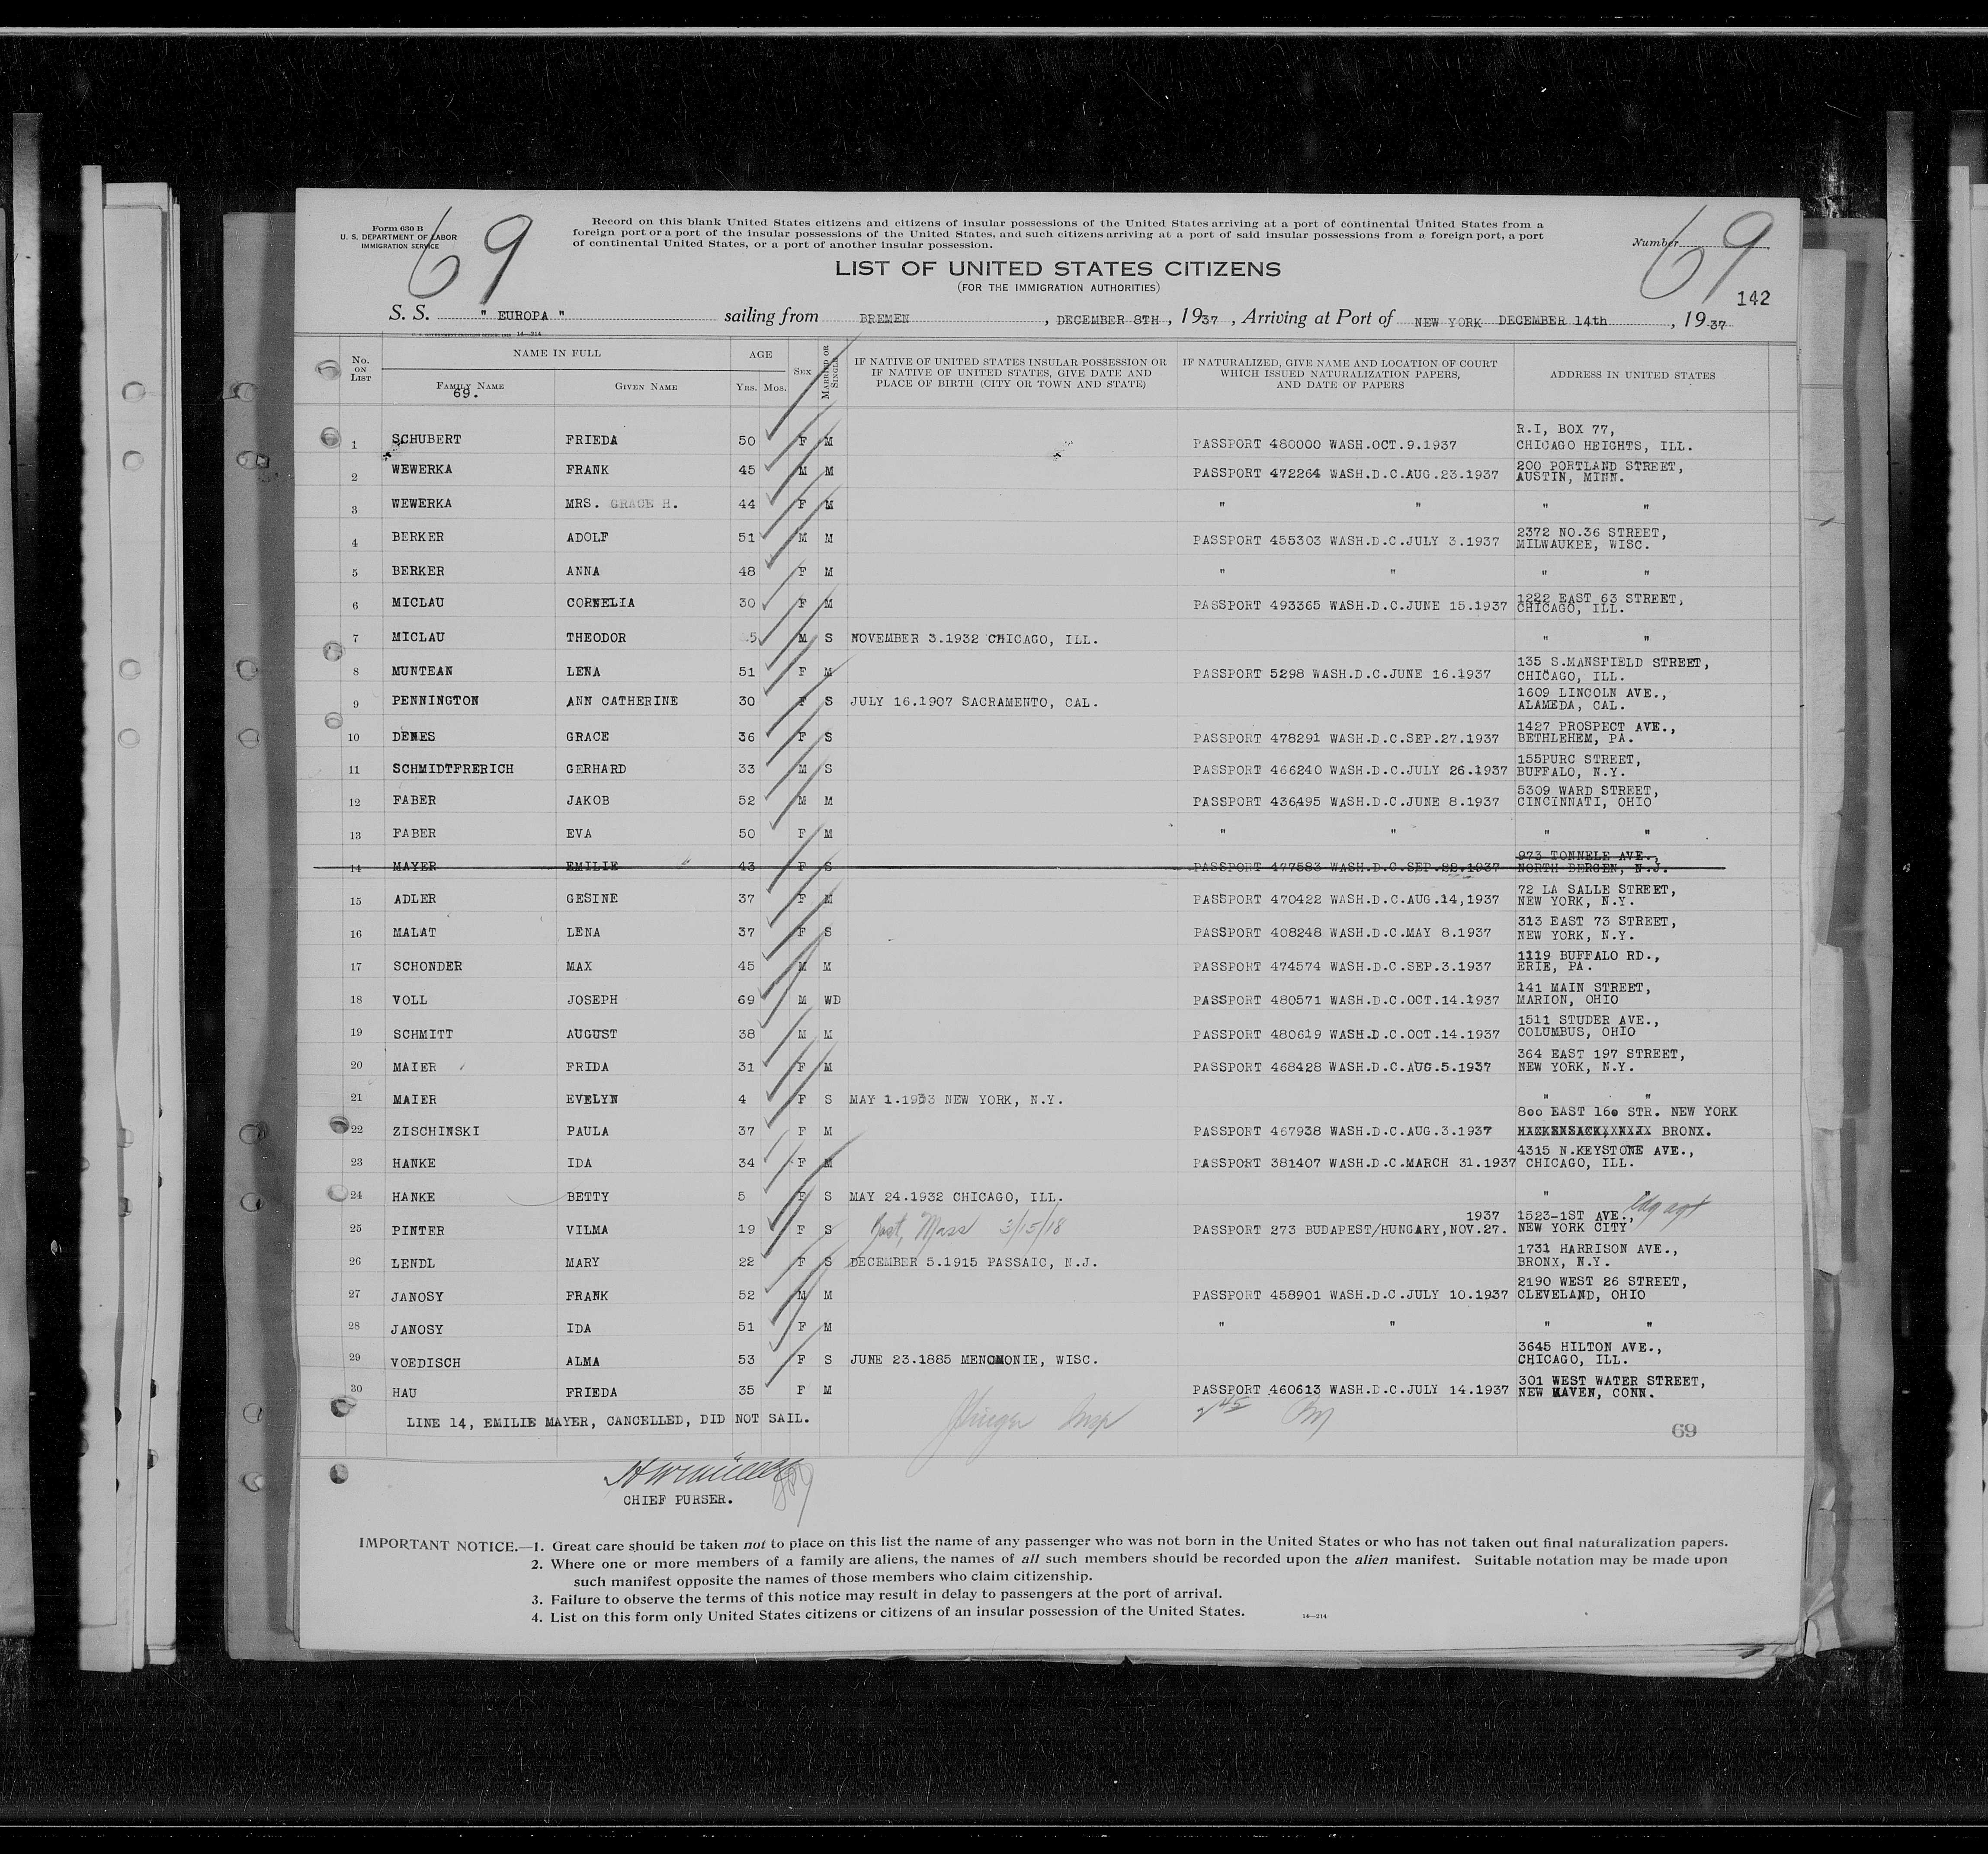 Form 630 B
U. S. DEPARTMENT OF LABOR
IMMIGRATION SERVICE
69
Record on this blank United States citizens and citizens of insular possessions of the United States arriving at a port of continental United States from a
foreign port or a port of the insular possessions of the United States, and such citizens arriving at a port of said insular possessions from a foreign port, a port
of continental United States, or a port of another insular possession.
Number 69
LIST OF UNITED STATES CITIZENS
(FOR THE IMMIGRATION AUTHORITIES)
142
S. S. " EUROPA " sailing from BREMEN , DECEMBER 8TH , 1937 , Arriving at Port of NEW YORK DECEMBER 14th , 1937
14—214
No. ON LIST
NAME IN FULL
FAMILY NAME
69.
GIVEN NAME
AGE
YRS. MOS.
SEX
MARRIED OR SINGLE
IF NATIVE OF UNITED STATES INSULAR POSSESSION OR
IF NATIVE OF UNITED STATES, GIVE DATE AND
PLACE OF BIRTH (CITY OR TOWN AND STATE)
IF NATURALIZED, GIVE NAME AND LOCATION OF COURT
WHICH ISSUED NATURALIZATION PAPERS,
AND DATE OF PAPERS
ADDRESS IN UNITED STATES
1 SCHUBERT FRIEDA 50 F M PASSPORT 480000 WASH.OCT.9.1937 R.I, BOX 77,
CHICAGO HEIGHTS, ILL.
2 WEWERKA FRANK 45 M M PASSPORT 472264 WASH.D.C.AUG.23.1937 200 PORTLAND STREET,
AUSTIN, MINN.
3 WEWERKA MRS. GRACE H. 44 F M " " " "
4 BERKER ADOLF 51 M M PASSPORT 455303 WASH.D.C.JULY 3.1937 2372 NO.36 STREET,
MILWAUKEE, WISC.
5 BERKER ANNA 48 F M " " " "
6 MICLAU CORNELIA 30 F M PASSPORT 493365 WASH.D.C.JUNE 15.1937 1222 EAST 63 STREET,
CHICAGO, ILL.
7 MICLAU THEODOR 5 M S NOVEMBER 3.1932 CHICAGO, ILL. " "
8 MUNTEAN LENA 51 F M PASSPORT 5298 WASH.D.C.JUNE 16.1937 135 S.MANSFIELD STREET,
CHICAGO, ILL.
9 PENNINGTON ANN CATHERINE 30 F S JULY 16.1907 SACRAMENTO, CAL. 1609 LINCOLN AVE.,
ALAMEDA, CAL.
10 DENES GRACE 36 F S PASSPORT 478291 WASH.D.C.SEP.27.1937 1427 PROSPECT AVE.,
BETHLEHEM, PA.
11 SCHMIDTFRERICH GERHARD 33 M S PASSPORT 466240 WASH.D.C.JULY 26.1937 155PURC STREET,
BUFFALO, N.Y.
12 FABER JAKOB 52 M M PASSPORT 436495 WASH.D.C.JUNE 8.1937 5309 WARD STREET,
CINCINNATI, OHIO
13 FABER EVA 50 F M " " " "
14 MAYER EMILIE 43 F S PASSPORT 477583 WASH.D.C.SEP.22.1937 973 TONNELE AVE.,
NORTH BERGEN, N.J.
15 ADLER GESINE 37 F M PASSPORT 470422 WASH.D.C.AUG.14,1937 72 LA SALLE STREET,
NEW YORK, N.Y.
16 MALAT LENA 37 F S PASSPORT 408248 WASH.D.C.MAY 8.1937 313 EAST 73 STREET,
NEW YORK, N.Y.
17 SCHONDER MAX 45 M M PASSPORT 474574 WASH.D.C.SEP.3.1937 1119 BUFFALO RD.,
ERIE, PA.
18 VOLL JOSEPH 69 M WD PASSPORT 480571 WASH.D.C.OCT.14.1937 141 MAIN STREET,
MARION, OHIO
19 SCHMITT AUGUST 38 M M PASSPORT 480619 WASH.D.C.OCT.14.1937 1511 STUDER AVE.,
COLUMBUS, OHIO
20 MAIER FRIDA 31 F M PASSPORT 468428 WASH.D.C.AUG.5.1937 364 EAST 197 STREET,
NEW YORK, N.Y.
21 MAIER EVELYN 4 F S MAY 1.1933 NEW YORK, N.Y. " "
800 EAST 160 STR. NEW YORK
22 ZISCHINSKI PAULA 37 F M PASSPORT 467938 WASH.D.C.AUG.3.1937 BRONX.
23 HANKE IDA 34 F M PASSPORT 381407 WASH.D.C.MARCH 31.1937 4315 N.KEYSTONE AVE.,
CHICAGO, ILL.
24 HANKE BETTY 5 F S MAY 24.1932 CHICAGO, ILL. " "
25 PINTER VILMA 19 F S Mass 3/15/18 PASSPORT 273 BUDAPEST/HUNGARY,NOV.27. 1937 1523-1ST AVE.,
NEW YORK CITY
26 LENDL MARY 22 F S DECEMBER 5.1915 PASSAIC, N.J. 1731 HARRISON AVE.,
BRONX, N.Y.
27 JANOSY FRANK 52 M M PASSPORT 458901 WASH.D.C.JULY 10.1937 2190 WEST 26 STREET,
CLEVELAND, OHIO
28 JANOSY IDA 51 F M " " " "
29 VOEDISCH ALMA 53 F S JUNE 23.1885 MENOMONIE, WISC. 3645 HILTON AVE.,
CHICAGO, ILL.
30 HAU FRIEDA 35 F M PASSPORT 460613 WASH.D.C.JULY 14.1937 301 WEST WATER STREET,
NEW HAVEN, CONN.
LINE 14, EMILIE MAYER, CANCELLED, DID NOT SAIL.
69
CHIEF PURSER.
IMPORTANT NOTICE.—1. Great care should be taken not to place on this list the name of any passenger who was not born in the United States or who has not taken out final naturalization papers.
2. Where one or more members of a family are aliens, the names of all such members should be recorded upon the alien manifest. Suitable notation may be made upon
such manifest opposite the names of those members who claim citizenship.
3. Failure to observe the terms of this notice may result in delay to passengers at the port of arrival.
4. List on this form only United States citizens or citizens of an insular possession of the United States.
14—214